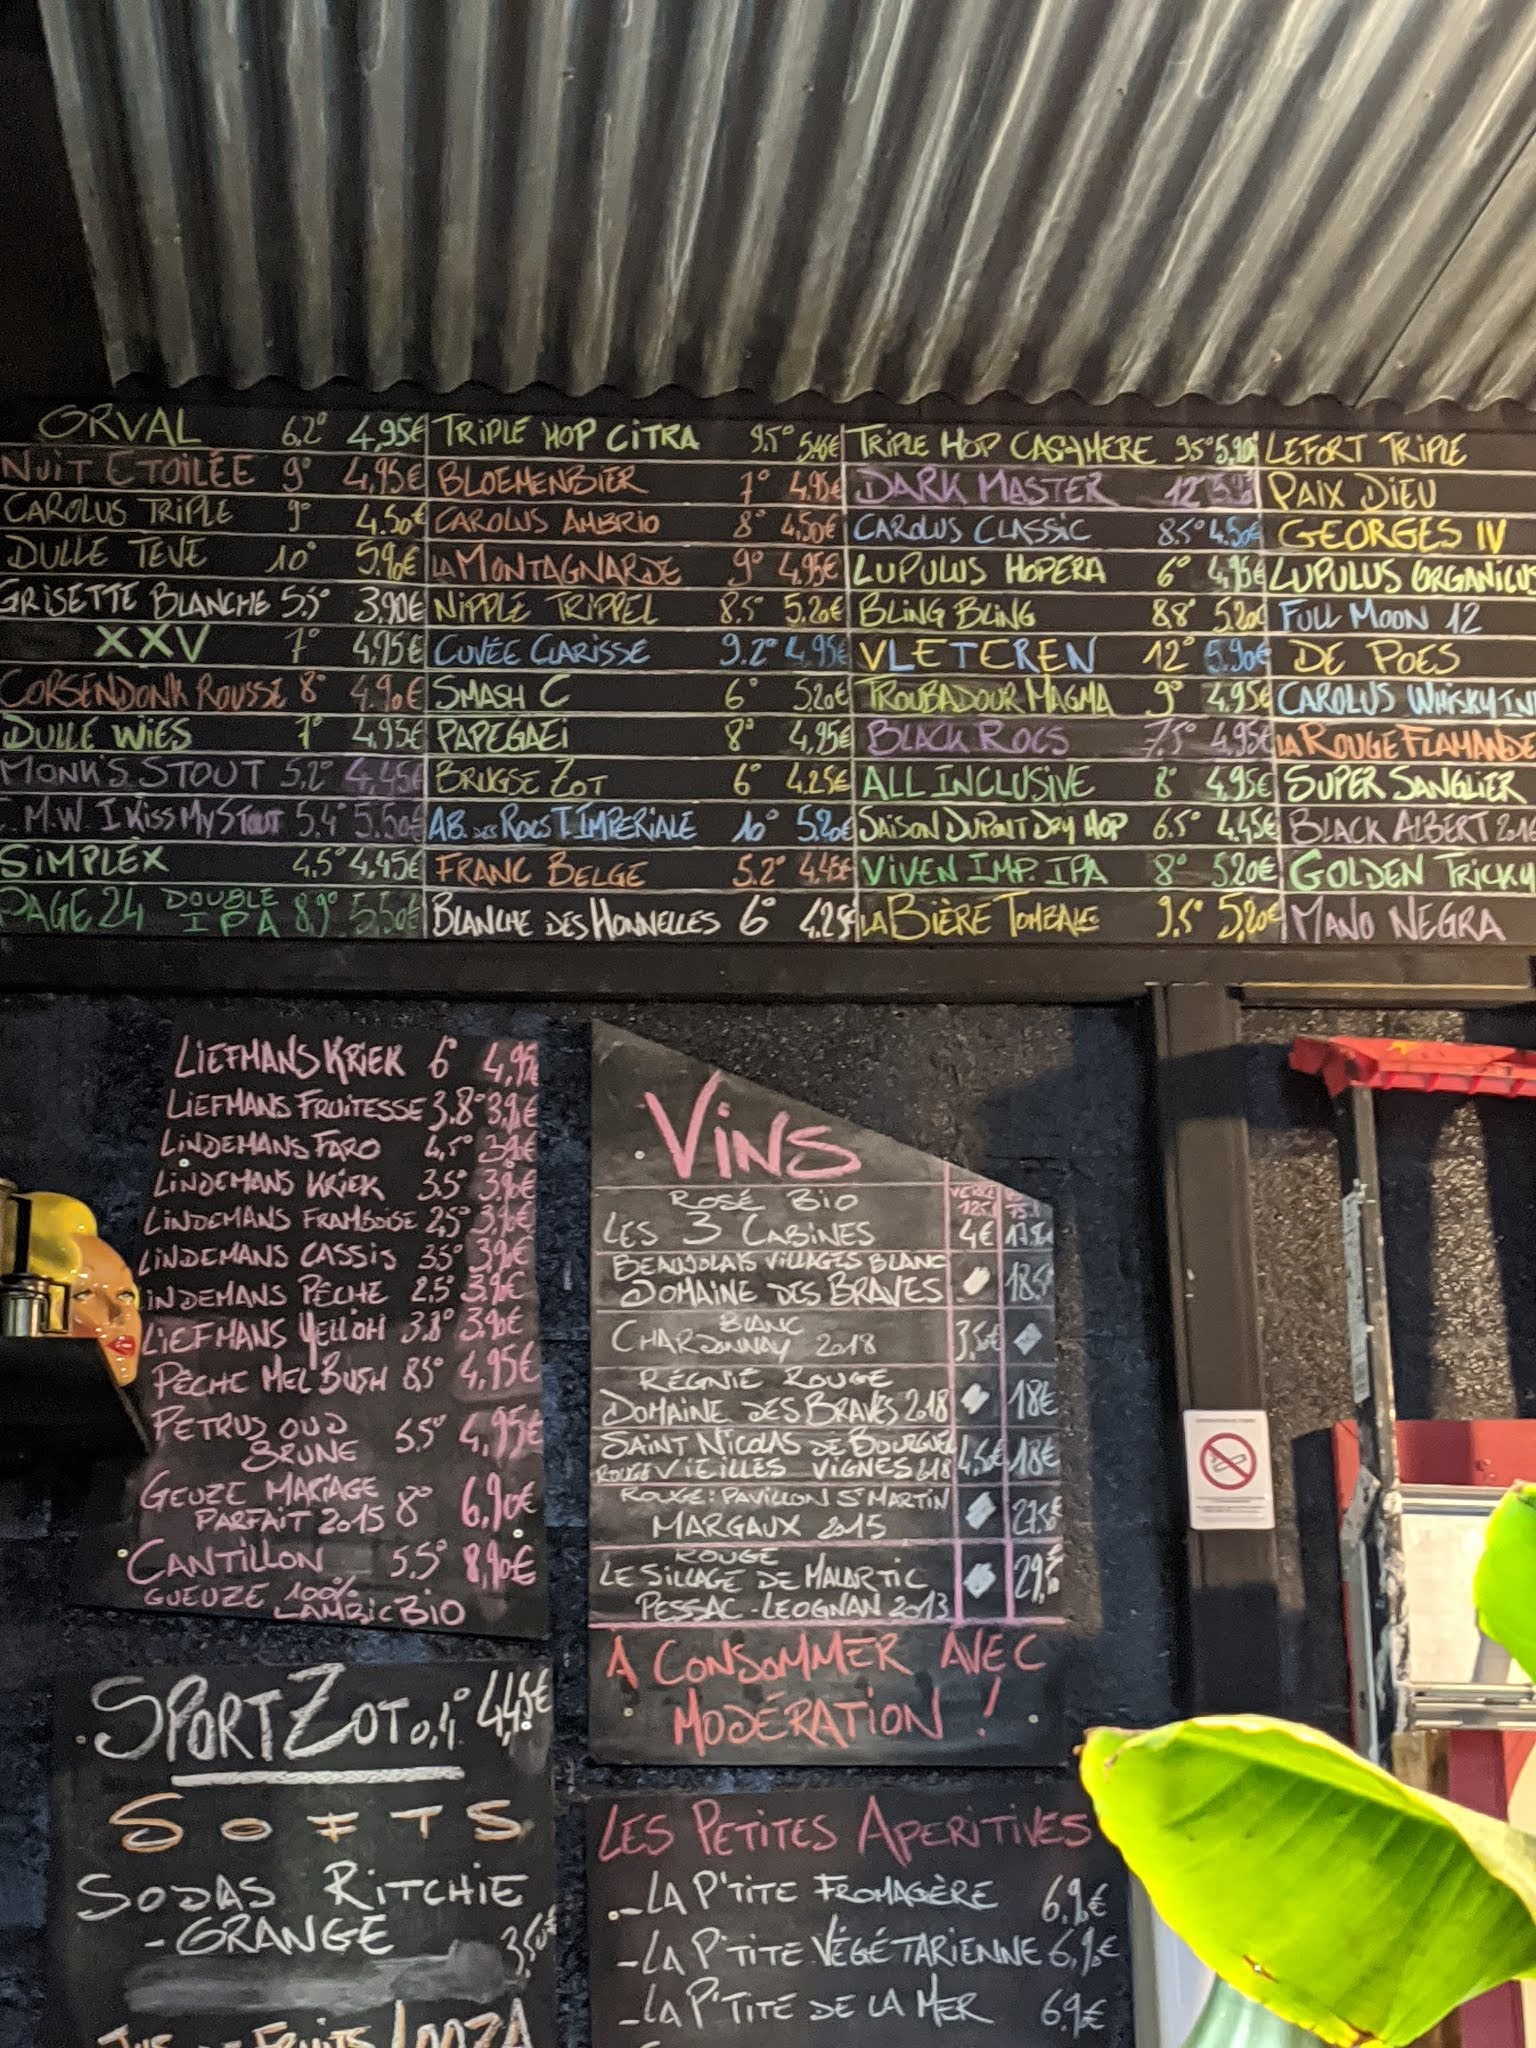 ORVAL 6,2° 4,95€
NUIT ETOILÉE 9° 4,95€
CAROLUS TRIPLE 9° 4.50€
DULLE TEVE 10° 5.90€
GRISETTE BLANCHE 5.5° 3.90€
XXV 7° 4.95€
CORSENDONK ROUSSE 8° 4.90€
DULLE WIES 7° 4.95€
MONK'S STOUT 5,2° 4,45€
M.W. I KISS MY STOUT 5.4° 5.50€
SIMPLEX 4.5° 4,45€
PAGE 24 DOUBLE IPA 8,9° 5,50€
TRIPLE HOP CITRA 9.5°
BLOEMENBIER 7° 4.95€
CAROLUS AMBRIO 8° 4,50€
LA MONTAGNARDE 9° 4.95€
NIPPLE TRIPPEL 8.5° 5.20€
CUVÉE CLARISSE 9.2° 4,95€
SMASH C 6° 5.20€
PAPEGAEI 8° 4,95€
BRUGSE ZOT 6° 4.25€
AB. DES ROCS T. IMPERIALE 10° 5.20€
FRANC BELGE 5.2° 4.45€
BLANCHE DES HONNELLES 6° 4.25€
TRIPLE HOP CASHMERE 9.5° 5,90€
DARK MASTER 12°
CAROLUS CLASSIC 8.5° 4.50€
LUPULUS HOPERA 6° 4,95€
BLING BLING 8.8° 5.20€
VLETEREN 12° 5.90€
TROUBADOUR MAGMA 9° 4.95€
BLACK ROCS 7.5° 4,95€
ALL INCLUSIVE 8° 4.95€
SAISON DUPONT DRY HOP 6.5° 4,45€
VIVEN IMP. IPA 8° 5.20€
LA BIÈRE TOMBALE 9.5° 5,20€
LEFORT TRIPLE
PAIX DIEU
GEORGES IV
LUPULUS ORGANICUS
FULL MOON 12
DE POES
CAROLUS WHISKY IN
LA ROUGE FLAMANDE
SUPER SANGLIER
BLACK ALBERT
GOLDEN TRICKY
MANO NEGRA
LIEFMANS KRIEK 6° 4,95
LIEFMANS FRUITESSE 3,8° 3.90€
LINDEMANS FARO 4,5° 3.90€
LINDEMANS KRIEK 3.5° 3.90€
LINDEMANS FRAMBOISE 2,5° 3,90€
LINDEMANS CASSIS 3.5° 3,90€
INDEMANS PÊCHE 2.5° 3.90€
LIEFMANS YELL'OH 3.8° 3.90€
PÊCHE MEL'BUSH 8,5° 4,95€
PETRUS OUD
BRUNE 5.5° 4,95€
GEUZE MARIAGE
PARFAIT 2015 8° 6,90€
CANTILLON 5.5° 8,90€
GUEUZE 100%
LAMBIC BIO
VINS
VERRE
12.5
ROSÉ BIO
LES 3 CABINES 4€ 17.50
BEAUJOLAIS VILLAGES BLANC
DOMAINE DES BRAVES 18.5
BLANC
CHARDONNAY 2018 3,50€
RÉGNIÉ ROUGE
DOMAINE DES BRAVES 2018 18€
SAINT NICOLAS DE BOURGUEIL
ROUGE VIEILLES VIGNES 2018 4,50€ 18€
ROUGE: PAVILLON ST MARTIN
MARGAUX 2015 27.50
ROUGE
LE SILLAGE DE MALARTIC
PESSAC-LEOGNAN 2013 29,
A CONSOMMER AVEC
MODÉRATION !
SPORT ZOT 0,4° 4,45€
SOFTS
SODAS RITCHIE
- ORANGE 3,50€
JUS DE FRUITS LOOZA
LES PETITES APERITIVES
- LA P'TITE FROMAGÈRE 6,90€
- LA P'TITE VÉGÉTARIENNE 6,90€
- LA P'TITE DE LA MER 6.90€